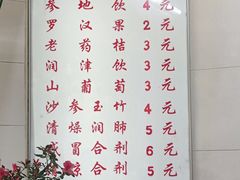 参地饮 4元
罗汉果 2元
老药桔 3元
润津饮 3元
山葡萄 3元
沙参玉竹 4元
清燥润肺 5元
感冒合剂 6元
凉合剂 5元